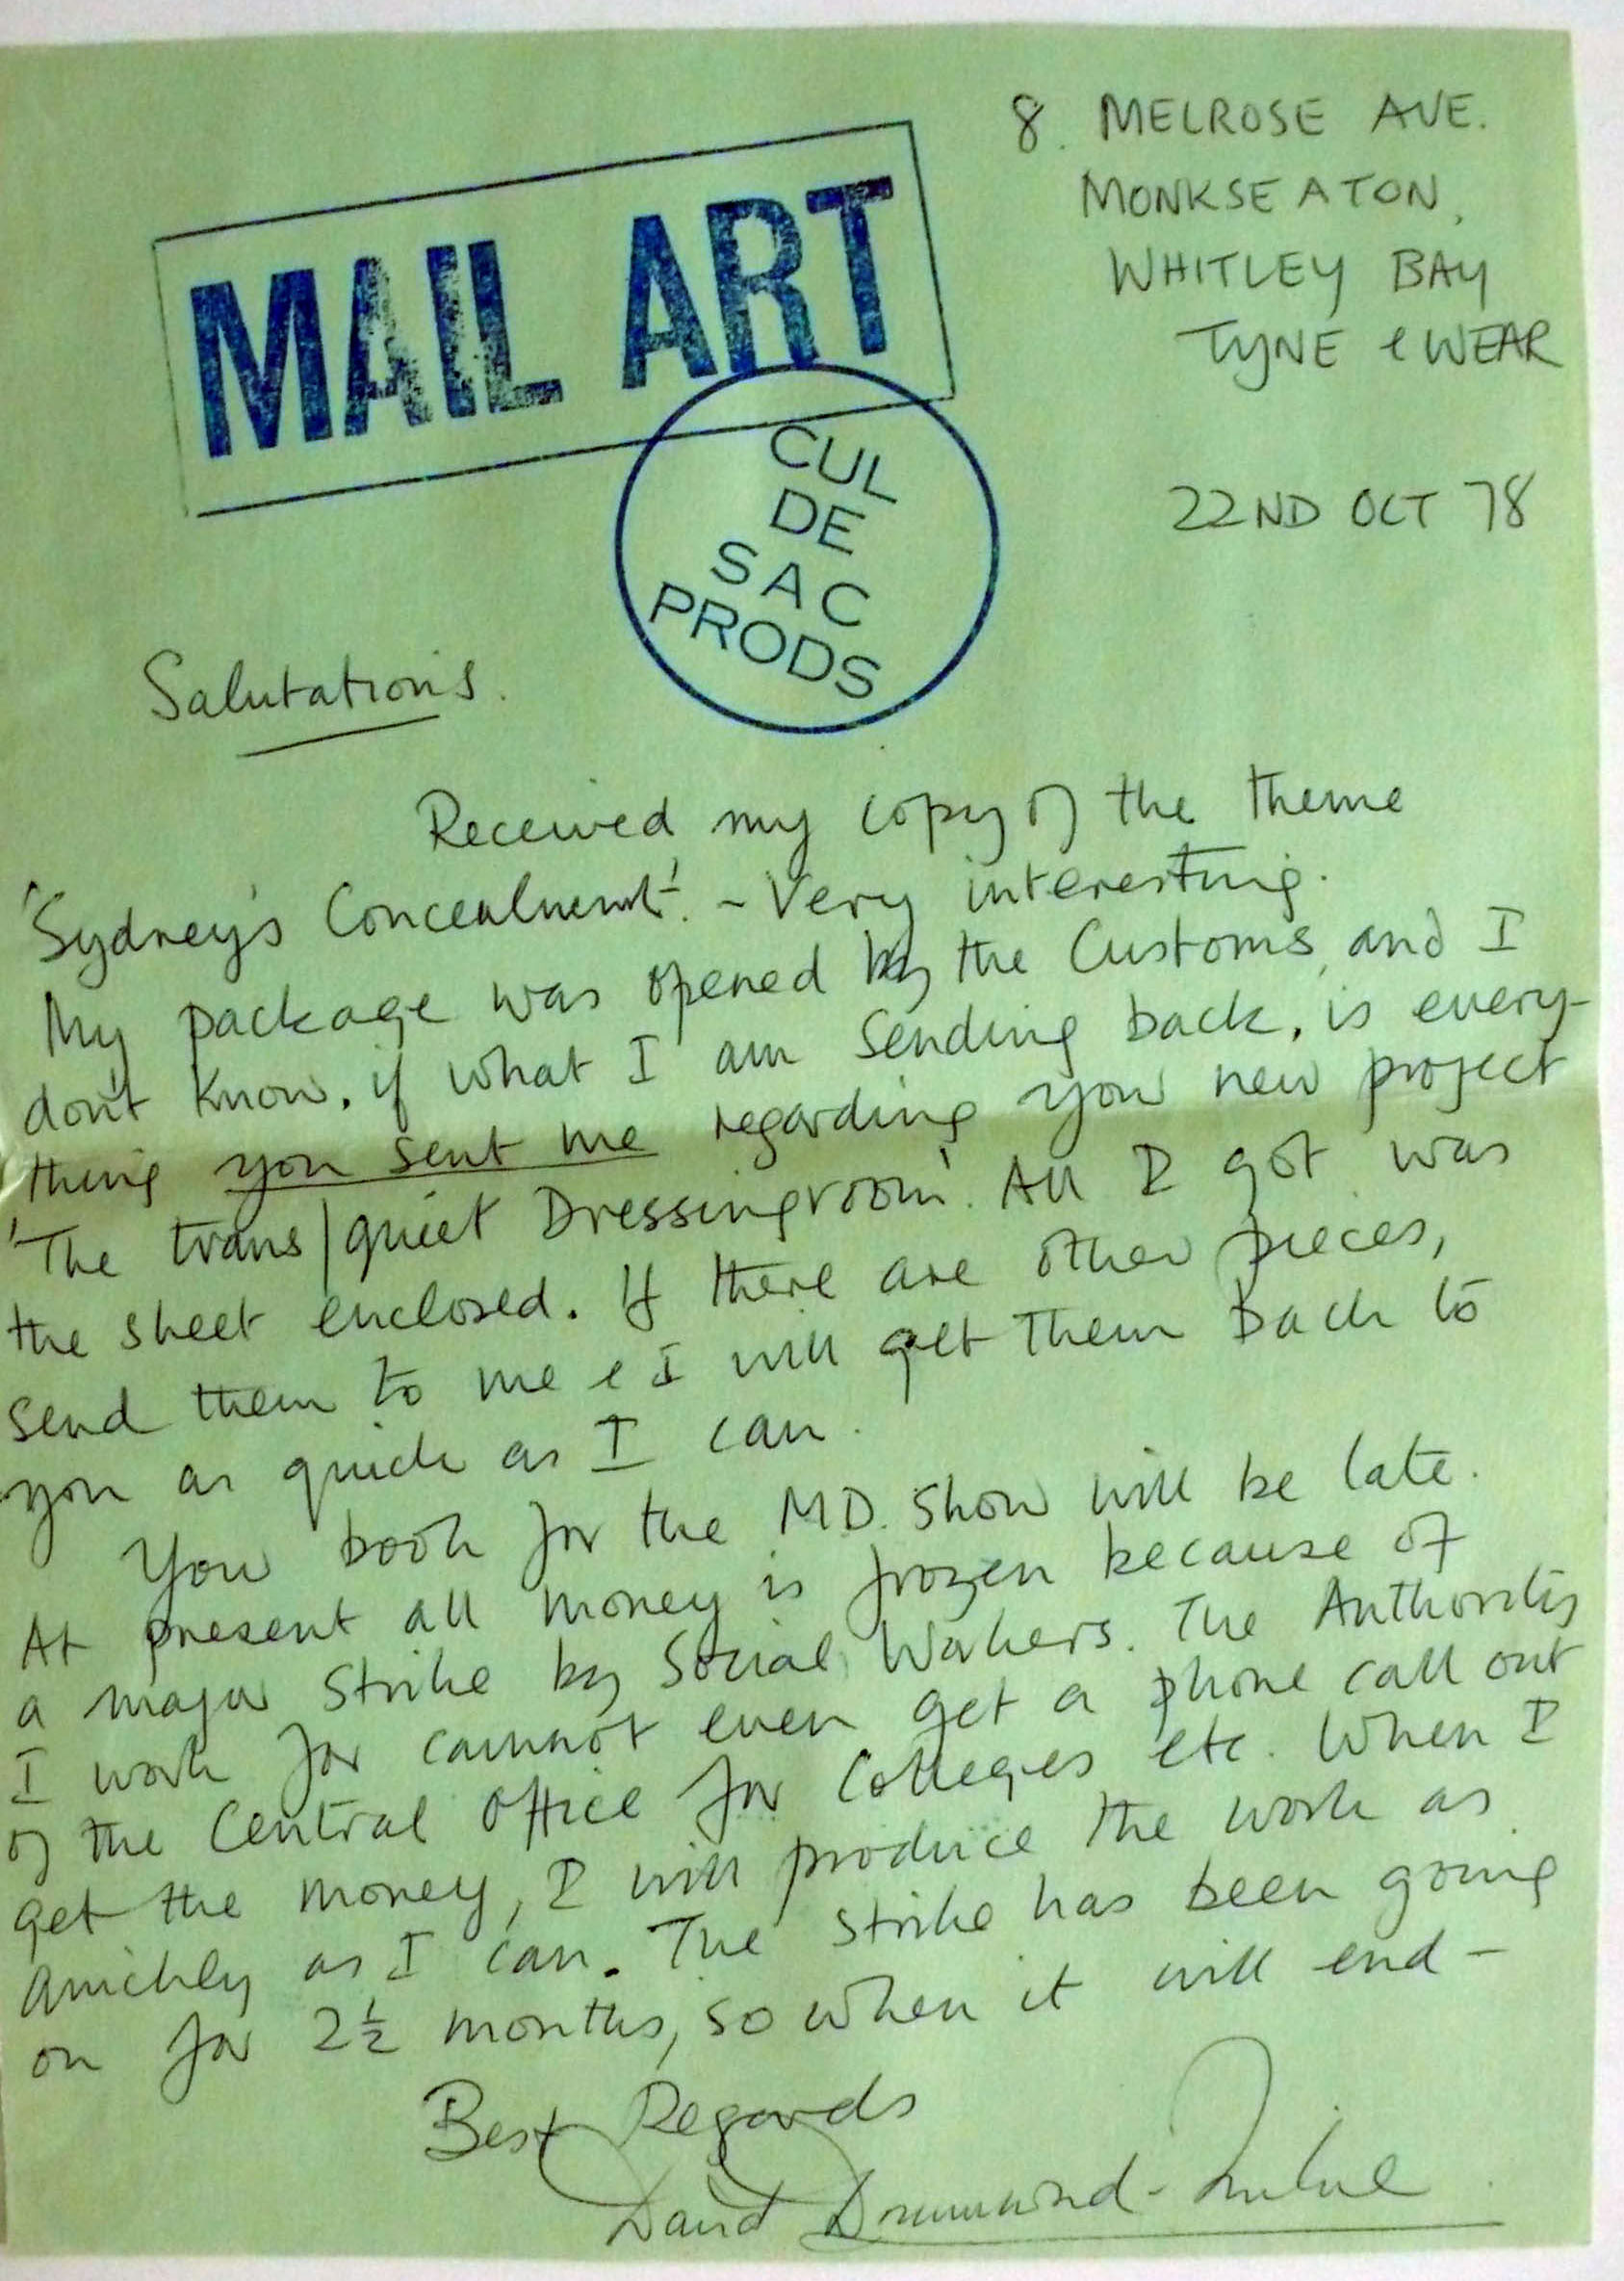 8. MELROSE AVE.
MONKSEATON,
WHITLEY BAY
TYNE & WEAR
22ND OCT 78
MAIL ART
CUL
DE
SAC
PRODS
Salutations.
Received my copy of the theme
'Sydney's Concealment'. - Very interesting.
My package was opened by the Customs, and I
don't know, if what I am sending back, is every-
thing you sent me regarding your new project
'The trans/quiet Dressingroom'. All I got was
the sheet enclosed. If there are other pieces,
send them to me & I will get them back to
you as quick as I can.
Your book for the M.D. Show will be late.
At present all money is frozen because of
a major strike by Social Workers. The Authority
I work for cannot even get a phone call out
of the Central Office for Colleges etc. When I
get the money, I will produce the work as
quickly as I can. The strike has been going
on for 2½ months, so when it will end -
Best Regards
David Drummond-